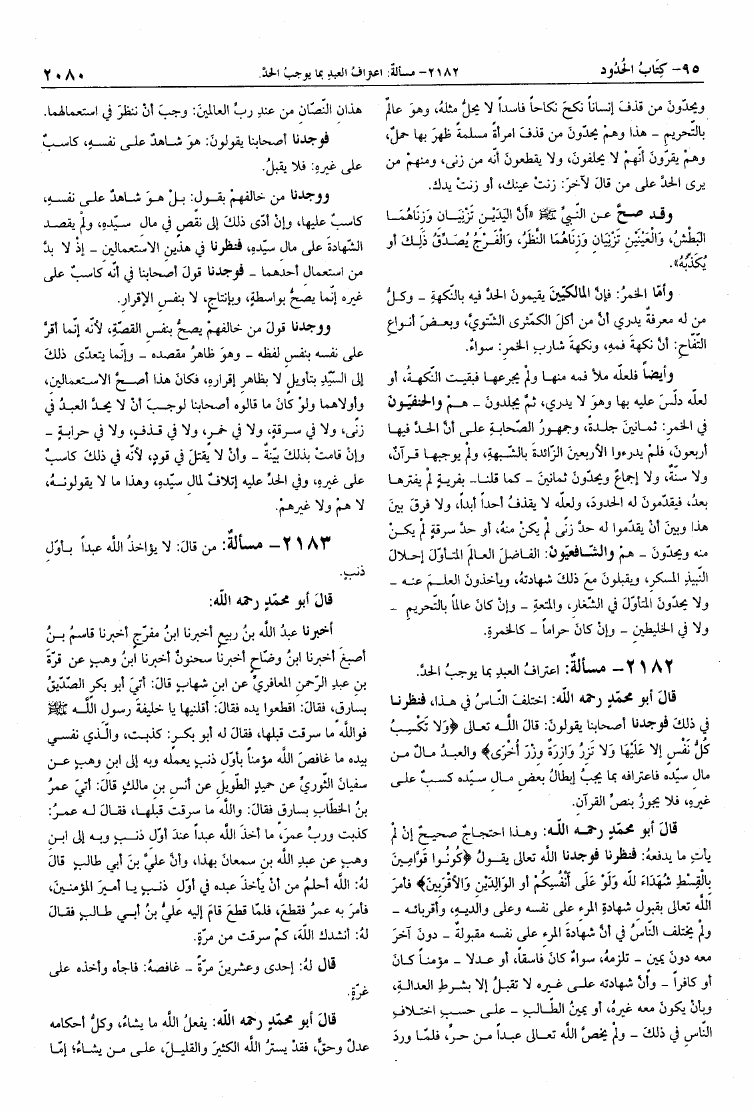 ٩٥- كِتَابُ الحُدُود
٢١٨٢- مسألةٌ: اعترافُ العبدِ بما يوجبُ الحدَّ.
٢٠٨٠
ويحدّونَ من قذفَ إنساناً نكحَ نكاحاً فاسداً لا يحلُّ مثلهُ، وهوَ عالمٌ
بالتّحريمِ - هذا وهمْ يحدّونَ من قذفَ امرأةً مسلمةً ظهرَ بها حملٌ،
وهمْ يقرّونَ أنّهمْ لا يحلفونَ، ولا يقطعونَ أنّه من زنى، ومنهمْ من
يرى الحدَّ على من قالَ لآخرَ: زنتْ عينك، أو زنتْ يدك.
وقـد صـحَّ عـن النّبيِّ ﷺ «أَنَّ اليَدَيْنِ تَزْنِيَـانِ وَزِنَاهُمَـا
البَطْشُ، وَالعَيْنَيْنِ تَزْنِيَانِ وَزِنَاهُمَا النَّظَرُ، وَالفَـرْجُ يُصَدِّقُ ذَلِـكَ أَو
يُكَذِّبُهُ».
وأمّا الخمرُ: فإنَّ المالكيّينَ يقيمونَ الحدَّ فيه بالنّكهةِ - وكلُّ
من له معرفةٌ يدري أنَّ من أكلَ الكمّثرى الشّتويَّ، وبعـضَ أنـواعِ
التّفّاحِ: أنَّ نكهةَ فمهِ، ونكهةَ شاربِ الخمرِ: سواءٌ.
وأيضاً فلعلّه ملأَ فمه منهـا ولمْ يجرعها فبقيت النّكهـةُ، أو
لعلّه دلّسَ عليه بها وهوَ لا يدري، ثمَّ يجلدونَ - هـمْ والحنفيّـون
في الخمرِ: ثمـانينَ جلـدةً، وجمهـورُ الصّحابةِ علـى أنَّ الحدَّ فيهـا
أربعونَ، فلمْ يدرءوا الأربعينَ الزّائدةَ بالشّبهةِ، ولمْ يوجبهـا قـرآنٌ،
ولا سنّةٌ، ولا إجماعٌ ويحدّونَ ثمانينَ - كما قلنـا- بفريةٍ لمْ يفترهـا
بعدُ، فيقدّمونَ له الحدودَ، ولعلّه لا يقذفُ أحداً أبداً، ولا فـرقَ بينَ
هذا وبينَ أنْ يقدّموا له حدَّ زنًى لمْ يكنْ منهُ، أو حدَّ سرقةٍ لمْ يكـنْ
منه ويحدّونَ - هـمْ والشّافعيّون: الفـاضلَ العـالمَ المتـأوّلَ إحـلالَ
النّبيذِ المسكرِ، ويقبلونَ معَ ذلكَ شهادتهُ، ويأخذونَ العلـمَ عنـه -
ولا يحدّونَ المتأوّلَ في الشّغارِ، والمتعةِ - وإنْ كانَ عالماً بالتّحريمِ -
ولا في الخليطينِ - وإنْ كانَ حراماً - كالخمرةِ.
٢١٨٢- مسألةٌ: اعترافُ العبدِ بما يوجبُ الحدَّ.
قالَ أبو محمّدٍ رحمه الله: اختلفَ النّـاسُ في هـذا، فنظرنـا
في ذلكَ فوجدنا أصحابنا يقولونَ: قالَ اللَّـه تعالى ﴿وَلَا تَكْسِـبُ
كُـلُّ نَفْسٍ إِلا عَلَيْهَا وَلَا تَزِرُ وَازِرَةٌ وِزْرَ أُخْرَى﴾ والعبـدُ مـالٌ مـن
مالِ سيّده فاعترافه بما يجبُ إبطالُ بعضِ مـالِ سيّده كسـبٌ علـى
غيرهِ، فلا يجوزُ بنصِّ القرآنِ.
قالَ أبو محمّدٍ رحمـه اللَّـه: وهـذا احتجـاجٌ صحيـحٌ إنْ لمْ
يأتِ ما يدفعهُ: فنظرنا فوجدنا اللَّه تعالى يقـولُ ﴿كُونُـوا قَوَّامِـينَ
بِالْقِسْطِ شُهَدَاءَ لِلَّه وَلَوْ عَلَى أَنْفُسِكُمْ أَو الوَالِدَيْنِ وَالأَقْرَبِينَ﴾ فأمرَ
اللَّه تعالى بقبولِ شهادةِ المرءِ على نفسه وعلى والديـهِ، وأقربائـه -
ولمْ يختلف النّاسُ في أنَّ شهادةَ المرءِ على نفسه مقبولةٌ - دونَ آخـرَ
معه دونَ يمينٍ - تلزمهُ، سواءٌ كانَ فاسقاً، أو عـدلا - مؤمنـاً كـانَ
أو كافراً - وأنَّ شهادته علـى غـيره لا تقبـلُ إلا بشـرطِ العدالـةِ،
وبـأنْ يكونَ معه غيرهُ، أو يمينُ الطّـالبِ - علـى حسـبِ اختـلافِ
النّاسِ في ذلكَ - ولمْ يخصَّ اللَّه تعـالى عبـداً مـن حـرٍّ، فلمّـا وردَ
هذانِ النّصّانِ من عندِ ربِّ العالمينَ: وجبَ أنْ ننظرَ في استعمالهمـا.
فوجدنا أصحابنا يقولونَ: هوَ شـاهدٌ علـى نفسـهِ، كاسـبٌ
على غيرهِ: فلا يقبلُ.
ووجدنا من خالفهـمْ يقـول: بـلْ هـوَ شـاهدٌ علـى نفسـهِ،
كاسبٌ عليها، وإنْ أدّى ذلكَ إلى نقصٍ في مالِ سيّـدهِ، ولمْ يقصـد
الشّهادةَ على مالِ سيّدهِ، فنظرنا في هذيـنِ الاستعمالينِ - إذْ لا بدَّ
من استعمالِ أحدهمـا - فوجدنـا قولَ أصحابنـا في أنّـه كاسبٌ على
غيره إنّما يصحُّ بواسطةٍ، وبإنتاجٍ، لا بنفسِ الإقرارِ.
ووجدنا قولَ من خالفهـمْ يصحُّ بنفسِ القصّةِ، لأنّه إنّمـا أقرَّ
على نفسه بنفسِ لفظه - وهوَ ظاهرُ مقصده - وإنّما يتعدّى ذلكَ
إلى السّيّدِ بتأويلٍ لا بظاهرِ إقرارهِ، فكانَ هذا أصـحَّ الاستعمالينِ،
وأولاهما ولوْ كانَ ما قالوه أصحابنا لوجـبَ أنْ لا يحـدَّ العبـدُ في
زنًى، ولا في سـرقةٍ، ولا في خمـرٍ، ولا في قـذفٍ، ولا في حرابـةٍ -
وإنْ قامتْ بذلكَ بيّنةٌ - وأنْ لا يقتلَ في قودٍ، لأنّه في ذلكَ كاسبٌ
على غيرهِ، وفي الحدِّ عليه إتلافٌ لمالِ سيّـدهِ، وهذا ما لا يقولونـهُ،
لا همْ ولا غيرهمْ.
٢١٨٣- مسألةٌ: من قالَ: لا يؤاخذُ اللَّه عبـداً بـأوّلِ
ذنبٍ.
قالَ أبو محمّدٍ رحمه الله:
أخبرنا عبدُ اللَّه بنُ ربيعٍ أخبرنا ابنُ مفرّجٍ أخبرنا قاسمُ بـنُ
أصبغَ أخبرنا ابنُ وضّاحٍ أخبرنا سحنونٌ أخبرنا ابنُ وهبٍ عن قرّةَ
بنِ عبدِ الرّحمنِ المعافريِّ عن ابنِ شهابٍ قالَ: أتيَ أبو بكرٍ الصّدّيقُ
بسارقٍ، فقالَ: اقطعوا يده فقالَ: أقلنيها يا خليفةَ رسولِ اللَّـه ﷺ
فواللَّه ما سرقت قبلها، فقالَ له أبو بكـرٍ: كذبتَ، والّـذي نفسـي
بيده ما غافصَ اللَّه مؤمناً بأوّلِ ذنبٍ يعمله وبه إلى ابنِ وهبٍ عـن
سفيانَ الثّوريِّ عن حميدٍ الطّويلِ عن أنسِ بنِ مالكٍ قالَ: أتيَ عمرُ
بنُ الخطّابِ بسارقٍ فقالَ: واللَّه ما سرقت قبلهـا، فقـالَ لـه عمـرُ:
كذبتَ وربِّ عمرَ، ما أخذَ اللَّه عبداً عندَ أوّلِ ذنـبٍ وبـه إلى ابـنِ
وهبٍ عن عبدِ اللَّه بنِ سمعانَ بهذا، وأنَّ علـيَّ بنَ أبي طالبٍ قالَ
لهُ: اللَّه أحلمُ من أنْ يأخذَ عبده في أوّلِ ذنبٍ يا أمـيرَ المؤمنـينَ،
فأمرَ به عمرُ فقطعَ، فلمّا قطعَ قامَ إليه عليُّ بنُ أبـي طالبٍ فقـالَ
لهُ: أنشدك اللَّهَ، كمْ سرقت من مرّةٍ.
قال لهُ: إحدى وعشرينَ مرّةً - غافصهُ: فاجأه وأخذه على
غرّةٍ.
قالَ أبو محمّدٍ رحمه الله: يفعلُ اللَّه ما يشاءُ، وكلُّ أحكامه
عدلٌ وحقٌّ، فقدْ يسترُ اللَّه الكثيرَ والقليـلَ، علـى مـن يشـاءُ؛ إمّـا